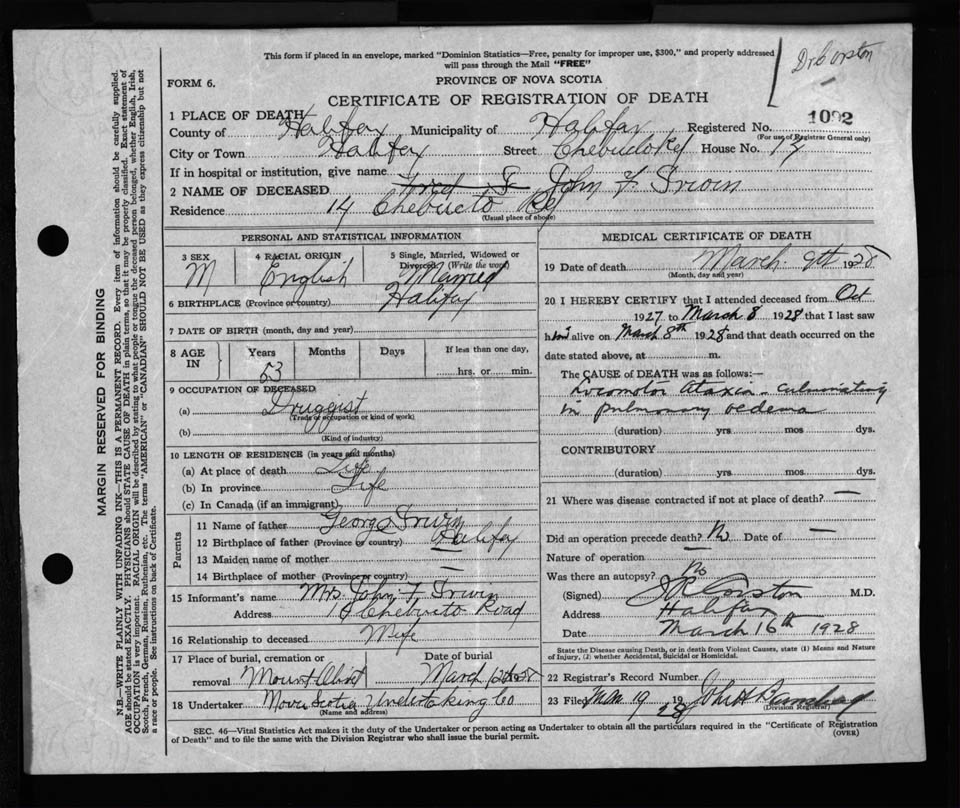 This form if placed in an envelope, marked "Dominion Statistics—Free, penalty for improper use, $300," and properly addressed
will pass through the Mail "FREE"
FORM 6.
PROVINCE OF NOVA SCOTIA
CERTIFICATE OF REGISTRATION OF DEATH
1 PLACE OF DEATH
County of Halifax Municipality of Halifax Registered No. 1092
(For use of Registrar General only)
City or Town Halifax Street Chebucto Rd House No. 14
If in hospital or institution, give name
2 NAME OF DECEASED John F. Irwin
Residence 14 Chebucto Rd
(Usual place of abode)
PERSONAL AND STATISTICAL INFORMATION
3 SEX M
4 RACIAL ORIGIN English
5 Single, Married, Widowed or Divorced (Write the word) Married
6 BIRTHPLACE (Province or country) Halifax
7 DATE OF BIRTH (month, day and year)
8 AGE IN Years 53 Months Days If less than one day, hrs. or min.
9 OCCUPATION OF DECEASED
(a) Druggist
(Trade or occupation or kind of work)
(b)
(Kind of industry)
10 LENGTH OF RESIDENCE (in years and months)
(a) At place of death Life
(b) In province Life
(c) In Canada (if an immigrant)
Parents
11 Name of father George Irwin
12 Birthplace of father (Province or country) Halifax
13 Maiden name of mother —
14 Birthplace of mother (Province or country) —
15 Informant's name Mrs John F. Irwin
Address Chebucto Road
16 Relationship to deceased Wife
17 Place of burial, cremation or removal Mount Olivet
Date of burial March 12th 1928
18 Undertaker Nova Scotia Undertaking Co
(Name and address)
MEDICAL CERTIFICATE OF DEATH
19 Date of death March 9th 1928
(Month, day and year)
20 I HEREBY CERTIFY that I attended deceased from Oct
1927 to March 8 1928 that I last saw
him alive on March 8th 1928 and that death occurred on the
date stated above, at m.
The CAUSE of DEATH was as follows:—
Locomotor Ataxia culminating
in pulmonary oedema
(duration) yrs mos dys.
CONTRIBUTORY
(duration) yrs mos dys.
21 Where was disease contracted if not at place of death? —
Did an operation precede death? No Date of —
Nature of operation —
Was there an autopsy? No
(Signed) Corston M.D.
Address Halifax
Date March 16th 1928
State the Disease causing Death, or in death from Violent Causes, state (1) Means and Nature
of Injury, (2) whether Accidental, Suicidal or Homicidal.
22 Registrar's Record Number
23 Filed Mar 19 1928
(Division Registrar)
SEC. 46—Vital Statistics Act makes it the duty of the Undertaker or person acting as Undertaker to obtain all the particulars required in the "Certificate of Registration
of Death" and to file the same with the Division Registrar who shall issue the burial permit.
(OVER)
MARGIN RESERVED FOR BINDING
N.B.—WRITE PLAINLY WITH UNFADING INK—THIS IS A PERMANENT RECORD. Every item of information should be carefully supplied.
AGE should be stated EXACTLY. PHYSICIANS should STATE CAUSE OF DEATH in plain terms, so that it may be properly classified. Exact statement of
OCCUPATION is very important. RACIAL ORIGIN will be described by stating to what people or tongue the deceased person belonged, whether English, Irish,
Scotch, French, German, Russian, Ruthenian, etc. The terms "AMERICAN" or "CANADIAN" SHOULD NOT BE USED as they express citizenship but not
a race or people. See instructions on back of Certificate.
Dr Corston